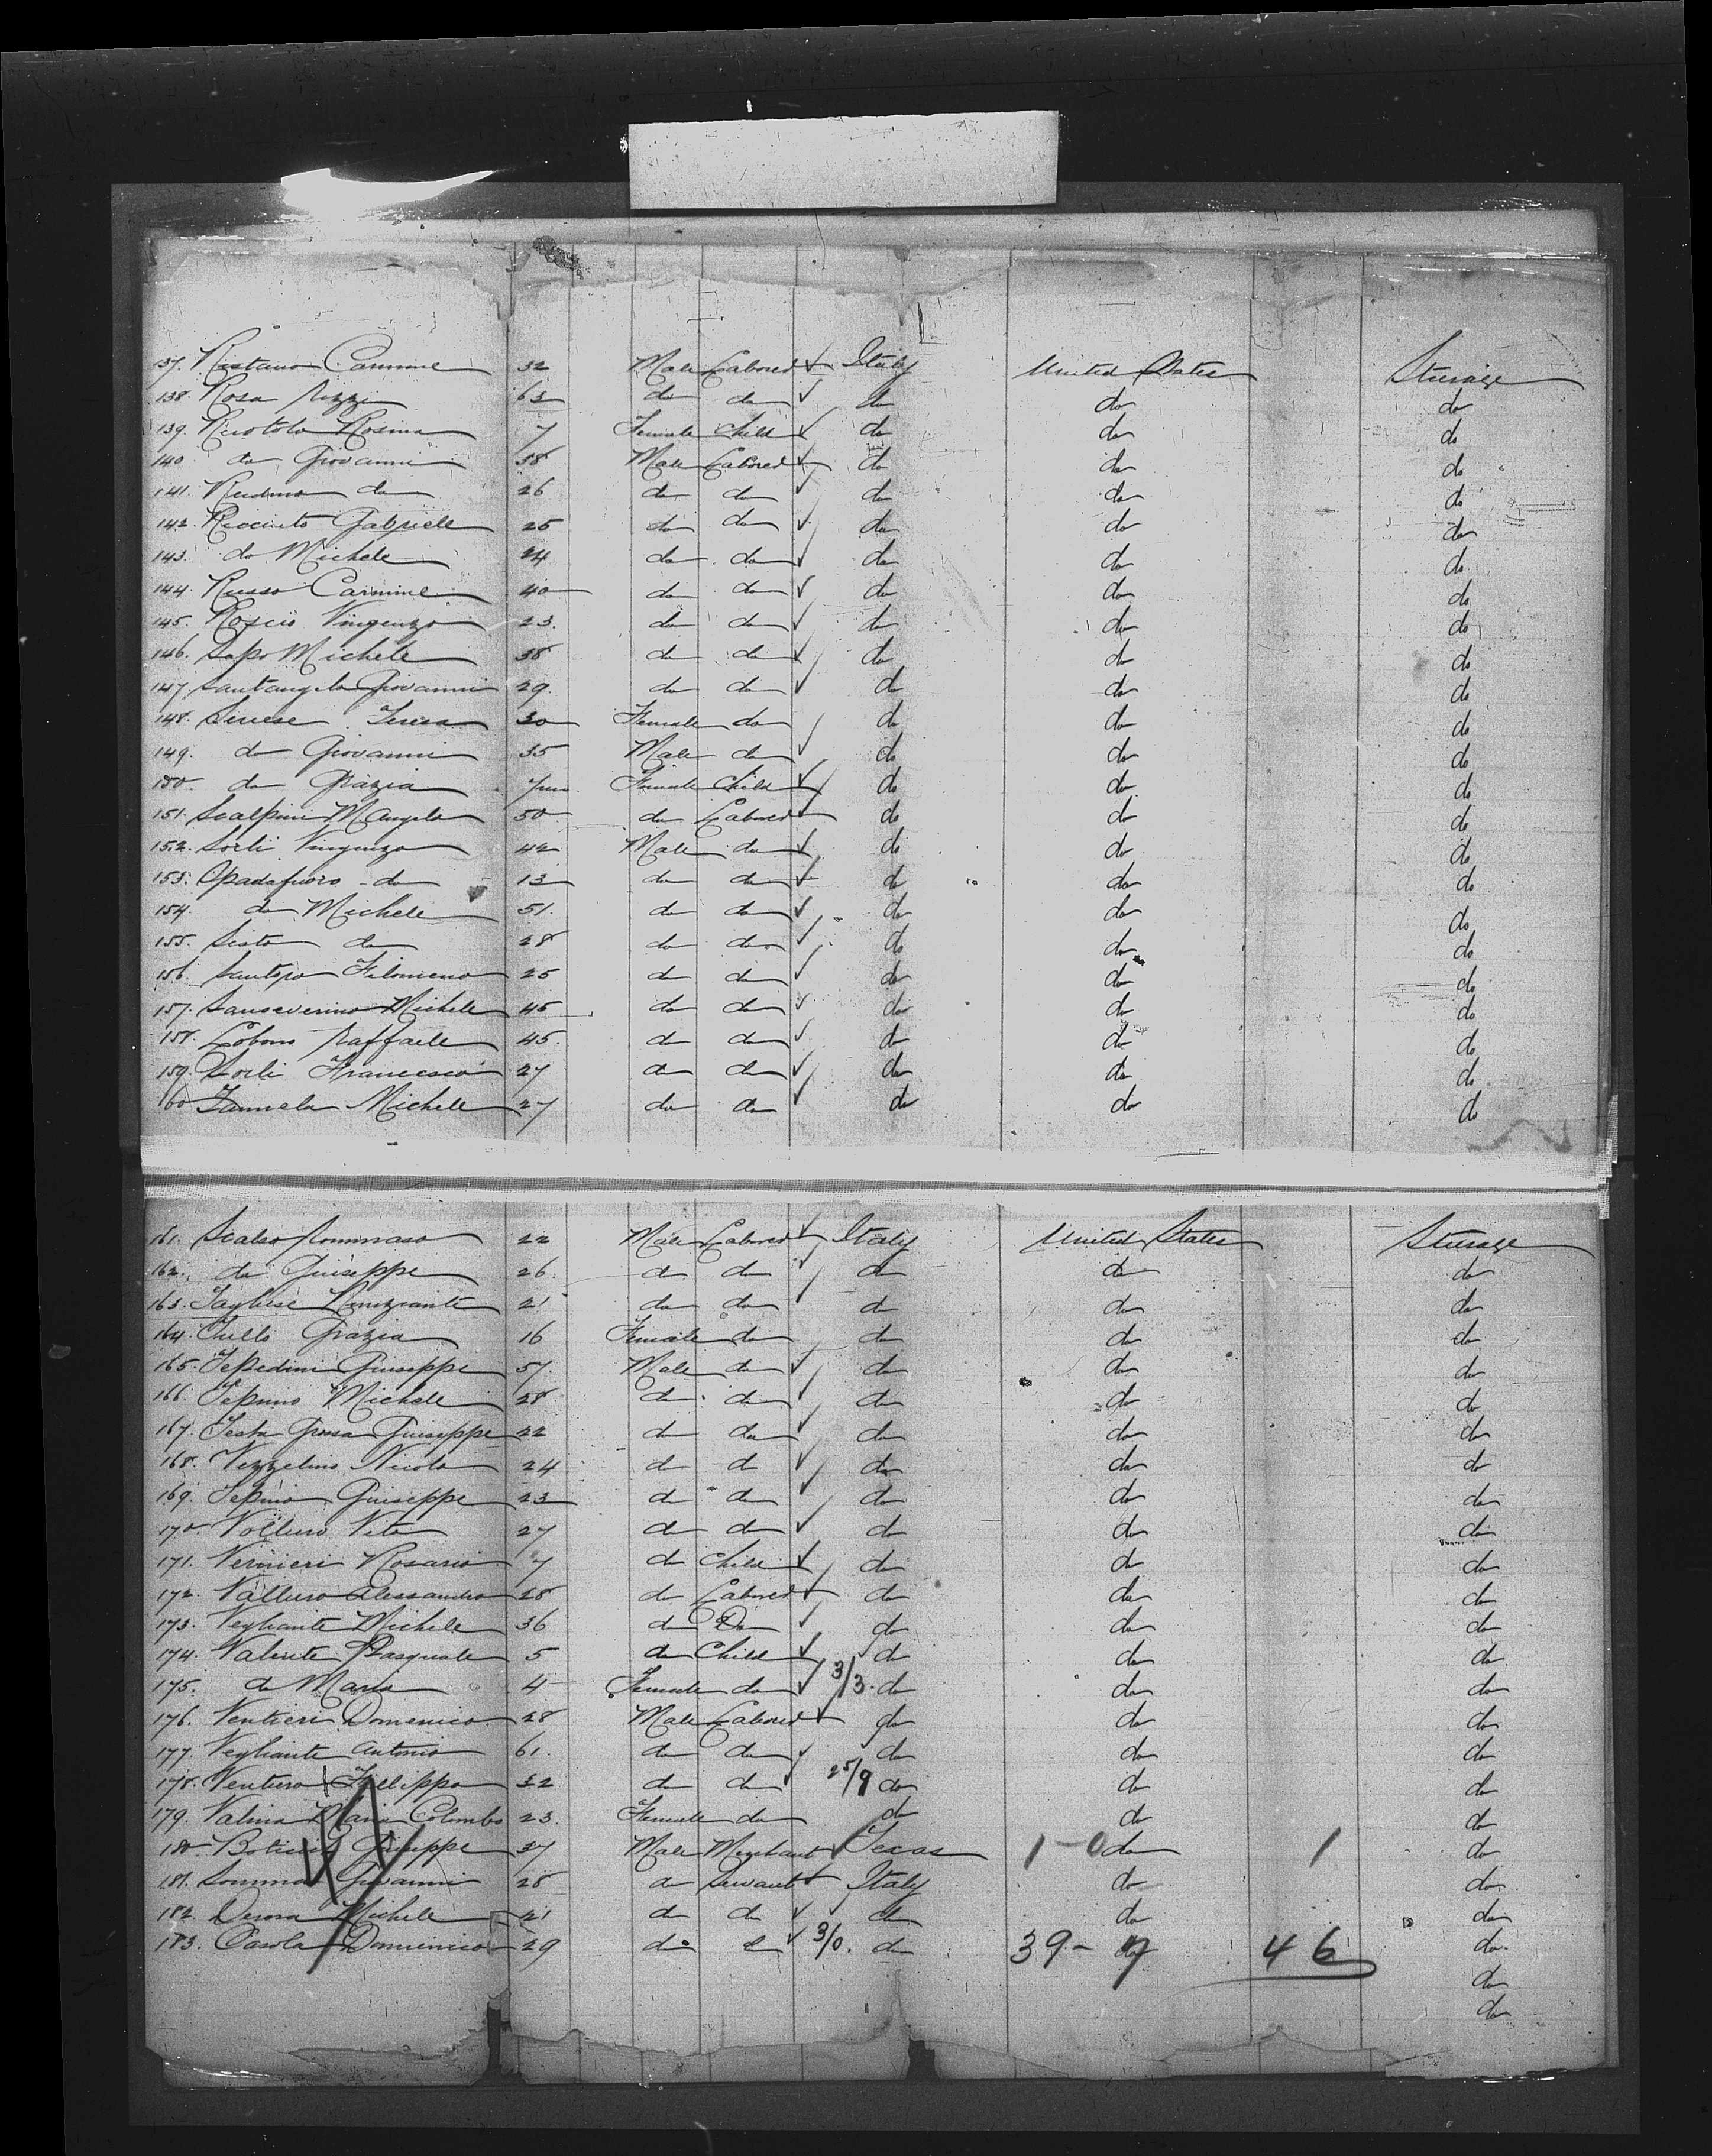 137. Ristano Carmine 32 Male Labored Italy United States Sturage
138. Rosa Rizzi 63 do do do do do
139. Ruotolo Rosina 7 Female Child do do do
140 do Giovanni 38 Male Labored do do do
141. do 26 do do do do do
142. Gabriele 25 do do do do do
143. do Michele 24 do do do do do
144. Russo Carmine 40 do do do do do
145. Roscio Vingenzo 23. do do do do do
146. Sapo Michele 38 do do do do do
147 Santangelo Giovanni 29. do do do do do
148. Senese Teresa 30 Female do do do do
149. do Giovanni 35 Male do do do do
150. do Grazia Female Child do do do
151. Scalpini M Angela 50 do Labored do do do
152. Sorli Vingenzo 42 Male do do do do
153. Spadafuoro do 13 do do do do do
154 do Michele 51. do do do do do
155. Sisto do 28 do do do do do
156. Filomeno 25 do do do do do
157. Sanseverino Michele 45 do do do do do
158. Lobono Raffaele 45. do do do do do
159. Sorli Francesco 27 do do do do do
160 Iannela Michele 27 do do do do do
161. Scalzo Tommaso 22 Male Labored Italy United States Sturage
162. do Guiseppe 26. do do do do do
163. Tagliese 21 do do do do do
164. Tullo Grazia 16 Female do do do do
165. Tepedini Giuseppe 57. Male do do do do
166. Michele 28 do do do do do
167. Testa Grosa Guiseppe 22 do do do do do
168. Vezzelino Nicola 24 do do do do do
169. Tepino Guiseppe 23 do do do do do
170. Volluro Vito 27 do do do do do
171. Vernieri Rosario 7 do Child do do do
172. Valluro Alessandro 28 do Labored do do do
173. Vegliante Michele 36 do Do do do do
174. Valente Pasquale 5 do Child do do do
175. do Maria 4 Female do 3/3. do do do
176. Ventieri Domenico 28 Male Labored do do do
177. Vegliante Antonio 61. do do do do do
178. Venturo Fillippo 32 do do 25/9 do do do
179. Valina Maria Colombo 23. Female do do do do
180. Guiseppe 37 Male Merchant Texas 1-0 do 1 do
181. Somma Giovanni 28 do Servant Italy do do
182. Derosa Michele 21 do do do do do
183. Casola Domenico 29 do do 3/0. do 39-7 46 do
do
do